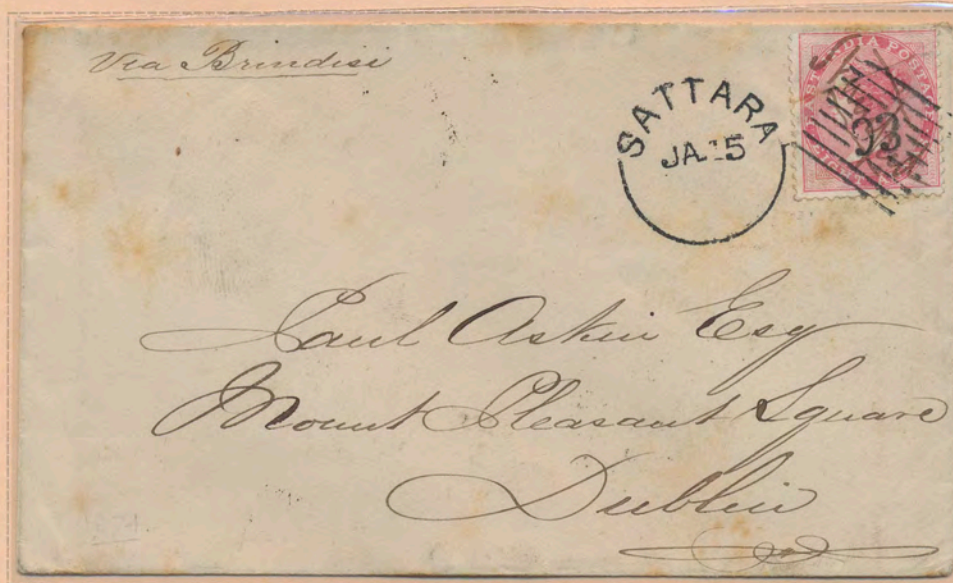 Via Brindisi
SATTARA
JA 15
EAST INDIA POSTAGE
93
Paul Askin Esq
Mount Pleasant Square
Dublin